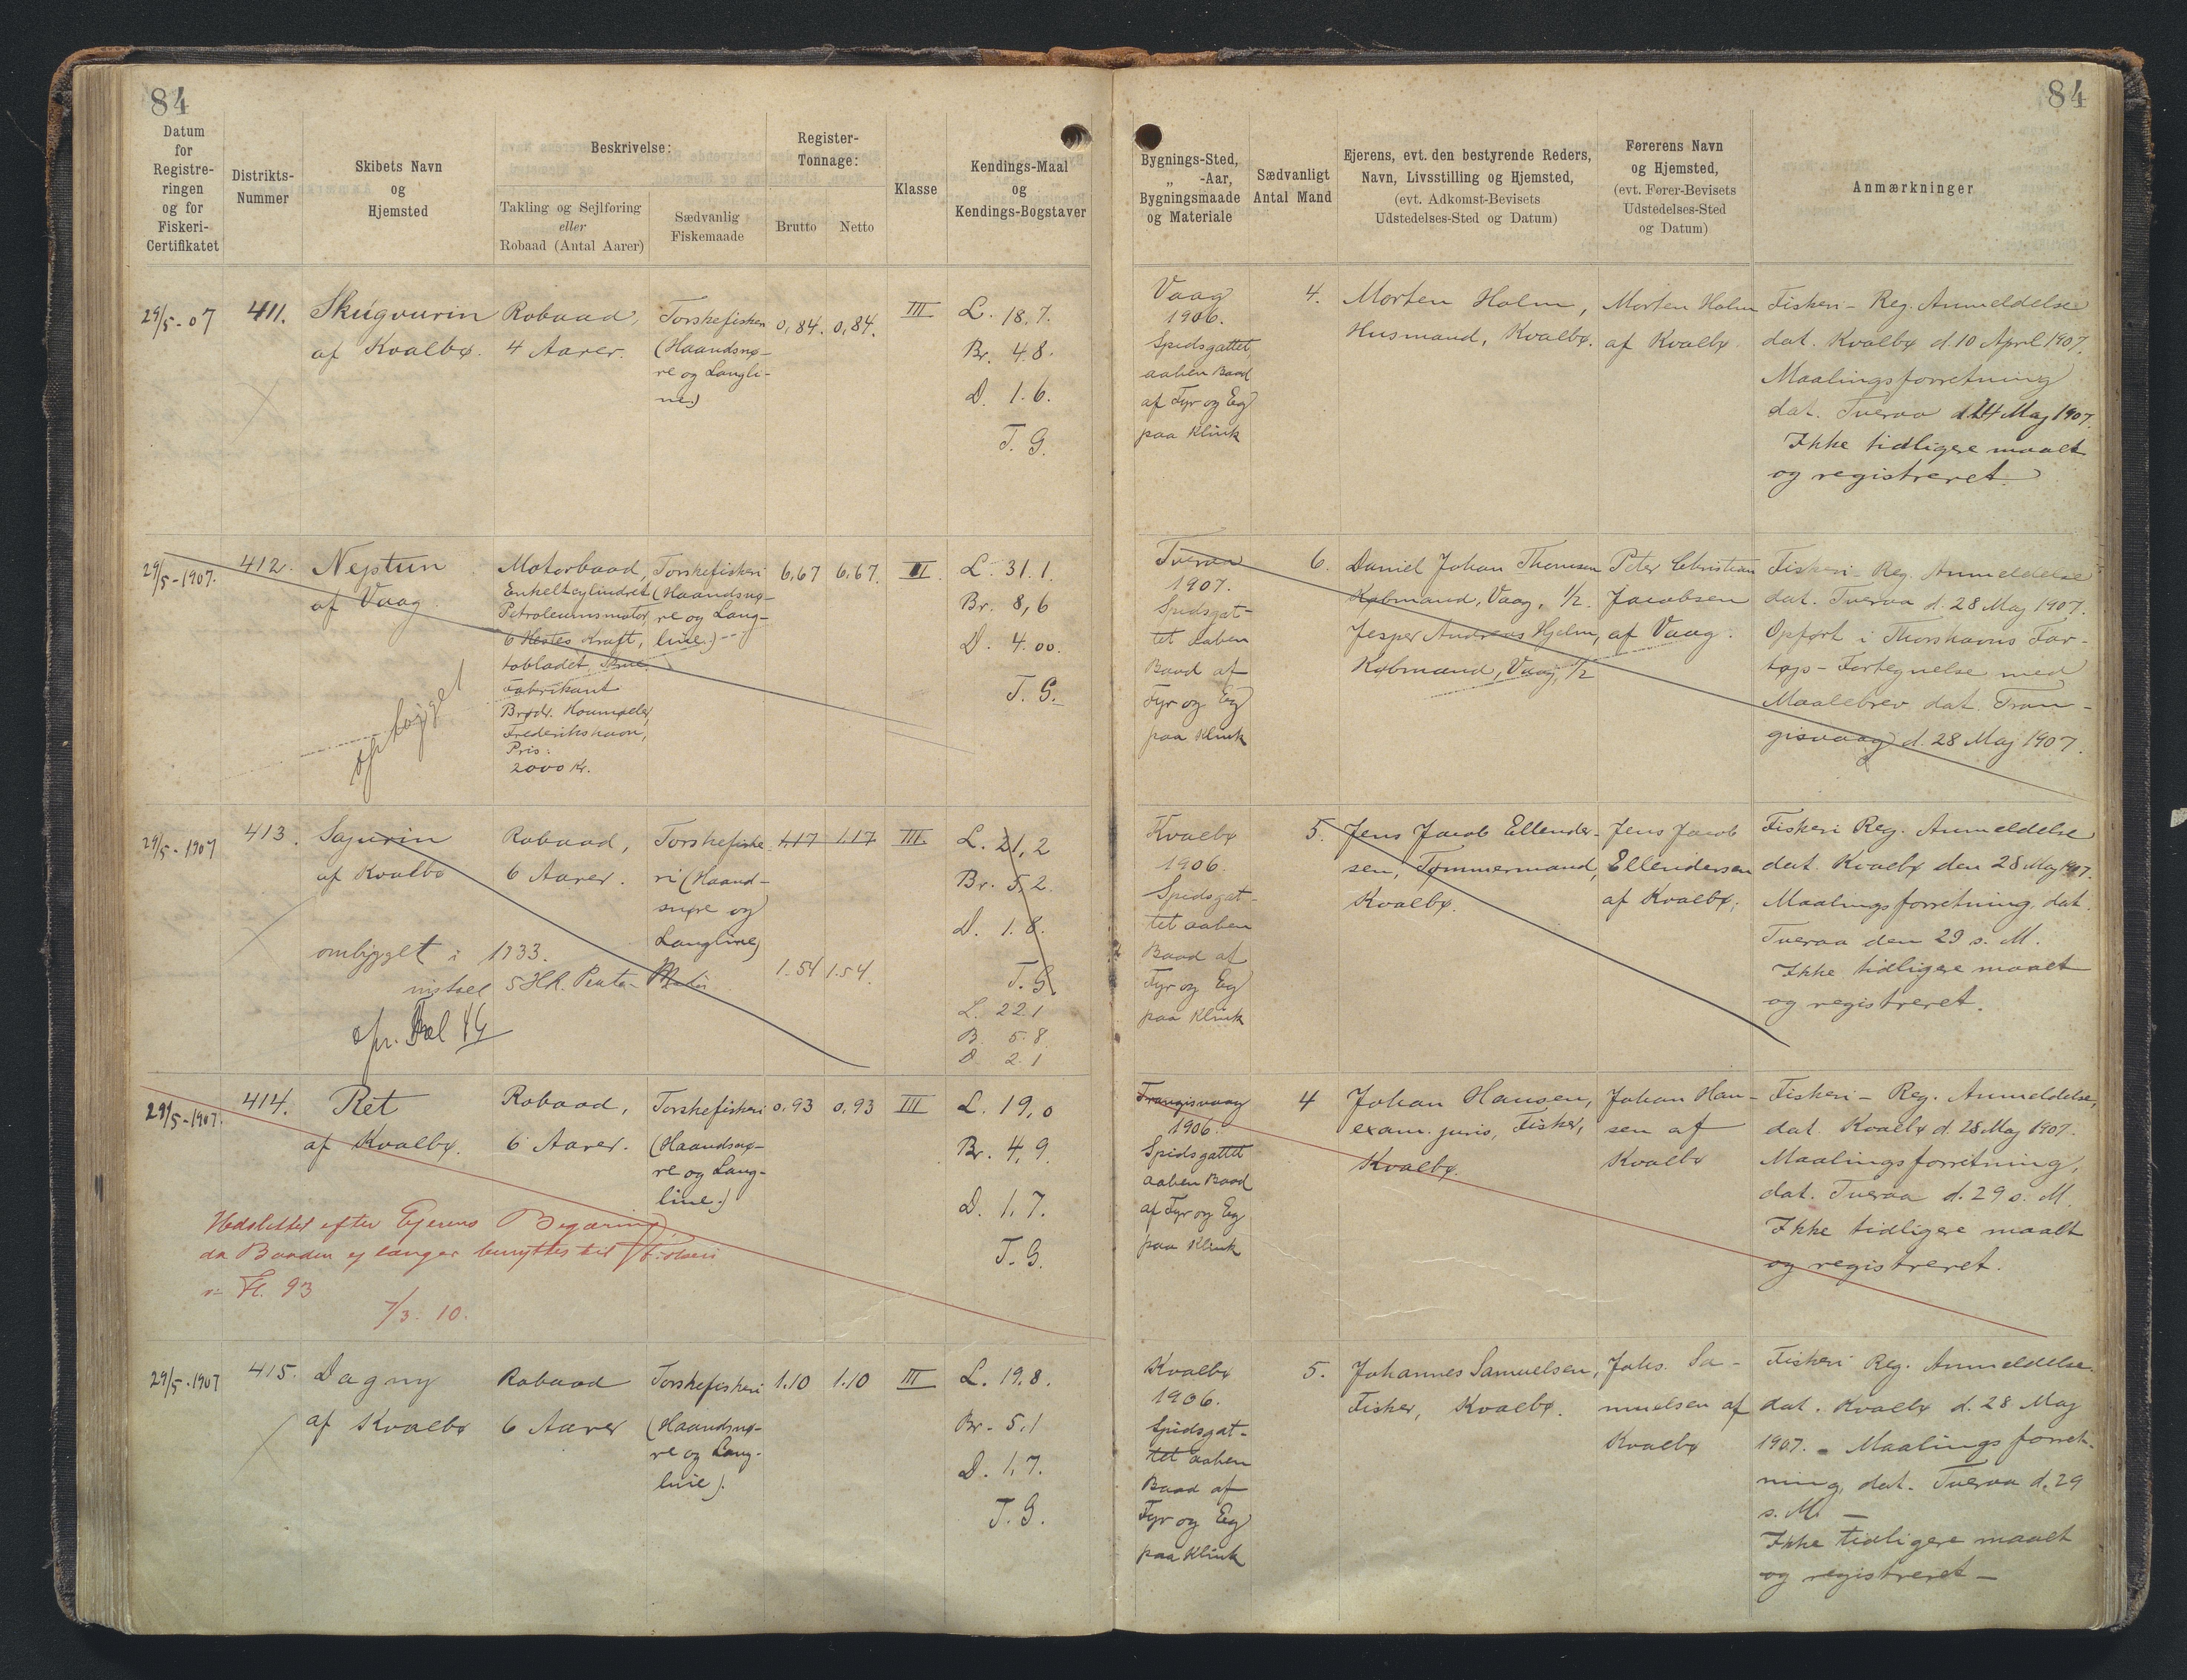 84
84
Datum
for
Registre-
ringen
og for
Fiskeri-
Certifikatet
Distrikts-
Nummer
Skibets Navn
og
Hjemsted
Beskrivelse:
Takling og Sejlføring
eller
Robaad (Antal Aarer)
Sædvanlig
Fiskemaade
Register-
Tonnage:
Brutto
Netto
Klasse
Kendings-Maal
og
Kendings-Bogstaver
Bygnings-Sted,
„ -Aar,
Bygningsmaade
og Materiale
Sædvanligt
Antal Mand
Ejerens, evt. den bestyrende Reders,
Navn, Livsstilling og Hjemsted,
(evt. Adkomst-Bevisets
Udstedelses-Sted og Datum)
Førerens Navn
og Hjemsted,
(evt. Fører-Bevisets
Udstedelses-Sted
og Datum)
Anmærkninger
29/5-07
411.
Skúgvurin
af Kvalbø.
Robaad,
4 Aarer.
Torskefiskeri
(Haandsnø-
re og Langli-
ne.)
0,84.
0,84.
III
L. 18,7.
Br. 4.8.
D. 1.6.
T. G.
Vaag
1906.
Spidsgattet
aaben Baad
af Fyr og Eg
paa Klink
4.
Morten Holm,
Husmand, Kvalbø.
Morten Holm
af Kvalbø.
Fiskeri-Reg. Anmeldelse
dat. Kvalbø d. 10 April 1907.
Maalingsforretning
dat. Tveraa d. 24 Maj 1907.
Ikke tidligere maalt
og registreret.
29/5-1907.
412.
Neptun
af Vaag.
ophugget
Motorbaad,
Enkeltcylindret
Petroleumsmotor,
6 Hestes Kraft,
tobladet Skrue.
Fabrikant
Brødr. Houmøller,
Frederikshavn,
Pris:
2000 Kr.
Torskefiskeri
(Haandsnø-
re og Lang-
line.)
6,67
6,67.
II.
L. 31.1.
Br. 8,6
D. 4.00.
T. G.
Tveraa
1907.
Spidsgat-
tet aaben
Baad af
Fyr og Eg
paa Klink
6.
Daniel Johan Thomsen
Købmand, Vaag, 1/2.
Jesper Andreas Hjelm,
Købmand, Vaag, 1/2
Peter Christian
Jacobsen
af Vaag.
Fiskeri-Reg. Anmeldelse
dat. Tveraa d. 28 Maj 1907.
Opført i Thorshavns Far-
tøjs-Fortegnelse med
Maalebrev dat. Tran-
gisvaag d. 28 Maj 1907.
29/5-1907
413.
Sajurin
af Kvalbø
Robaad,
6 Aarer.
Torskefiske-
ri (Haand-
snøre og
Langline)
1,17
1.17
III
L. 21,2
Br. 5,2.
D. 1.8.
T. G.
ombygget i 1933.
5 HK. Penta-Motor
1.54
1.54.
L. 22.1
B. 5.8
D. 2.1
Kvalbø
1906.
Spidsgat-
tet aaben
Baad af
Fyr og Eg
paa Klink
5.
Jens Jacob Ellender-
sen, Tømmermand,
Kvalbø.
Jens Jacob
Ellendersen
af Kvalbø.
Fiskeri Reg. Anmeldelse
dat. Kvalbø den 28 Maj 1907.
Maalingsforretning dat.
Tveraa den 29 s. M.
Ikke tidligere maalt
og registreret.
29/5-1907.
414.
Ret
af Kvalbø.
Robaad,
6 Aarer.
Torskefiskeri
(Haandsnø-
re og Lang-
line.)
0,93
0,93
III
L. 19,0
Br. 4,9
D. 1,7.
T. G.
Udslettet efter Ejerens Begæring,
da Baaden ej længer benyttes til Fiskeri
93
7/3. 10.
Trangisvaag
1906.
Spidsgattet
aaben Baad
af Fyr og Eg
paa Klink
4
Johan Hansen,
exam. juris, Fisker,
Kvalbø.
Johan Han-
sen af
Kvalbø
Fiskeri-Reg. Anmeldelse,
dat. Kvalbø d. 28 Maj 1907.
Maalingsforretning,
dat. Tveraa d. 29 s. M.
Ikke tidligere maalt
og registreret.
29/5-1907
415.
Dagny
af Kvalbø
Robaad
6 Aarer
Torskefiskeri
(Haandsnø-
re og Lang-
line).
1.10
1.10
III
L. 19,8.
Br. 5,1
D. 1,7.
T. G.
Kvalbø
1906.
Spidsgat-
tet aaben
Baad af
Fyr og Eg
paa Klink
5.
Johannes Samuelsen,
Fisker, Kvalbø.
Johs. Sa-
muelsen af
Kvalbø
Fiskeri Reg. Anmeldelse
dat. Kvalbø d. 28 Maj
1907. - Maalingsforret-
ning, dat. Tveraa d. 29
s. M. -
Ikke tidligere maalt
og registreret -